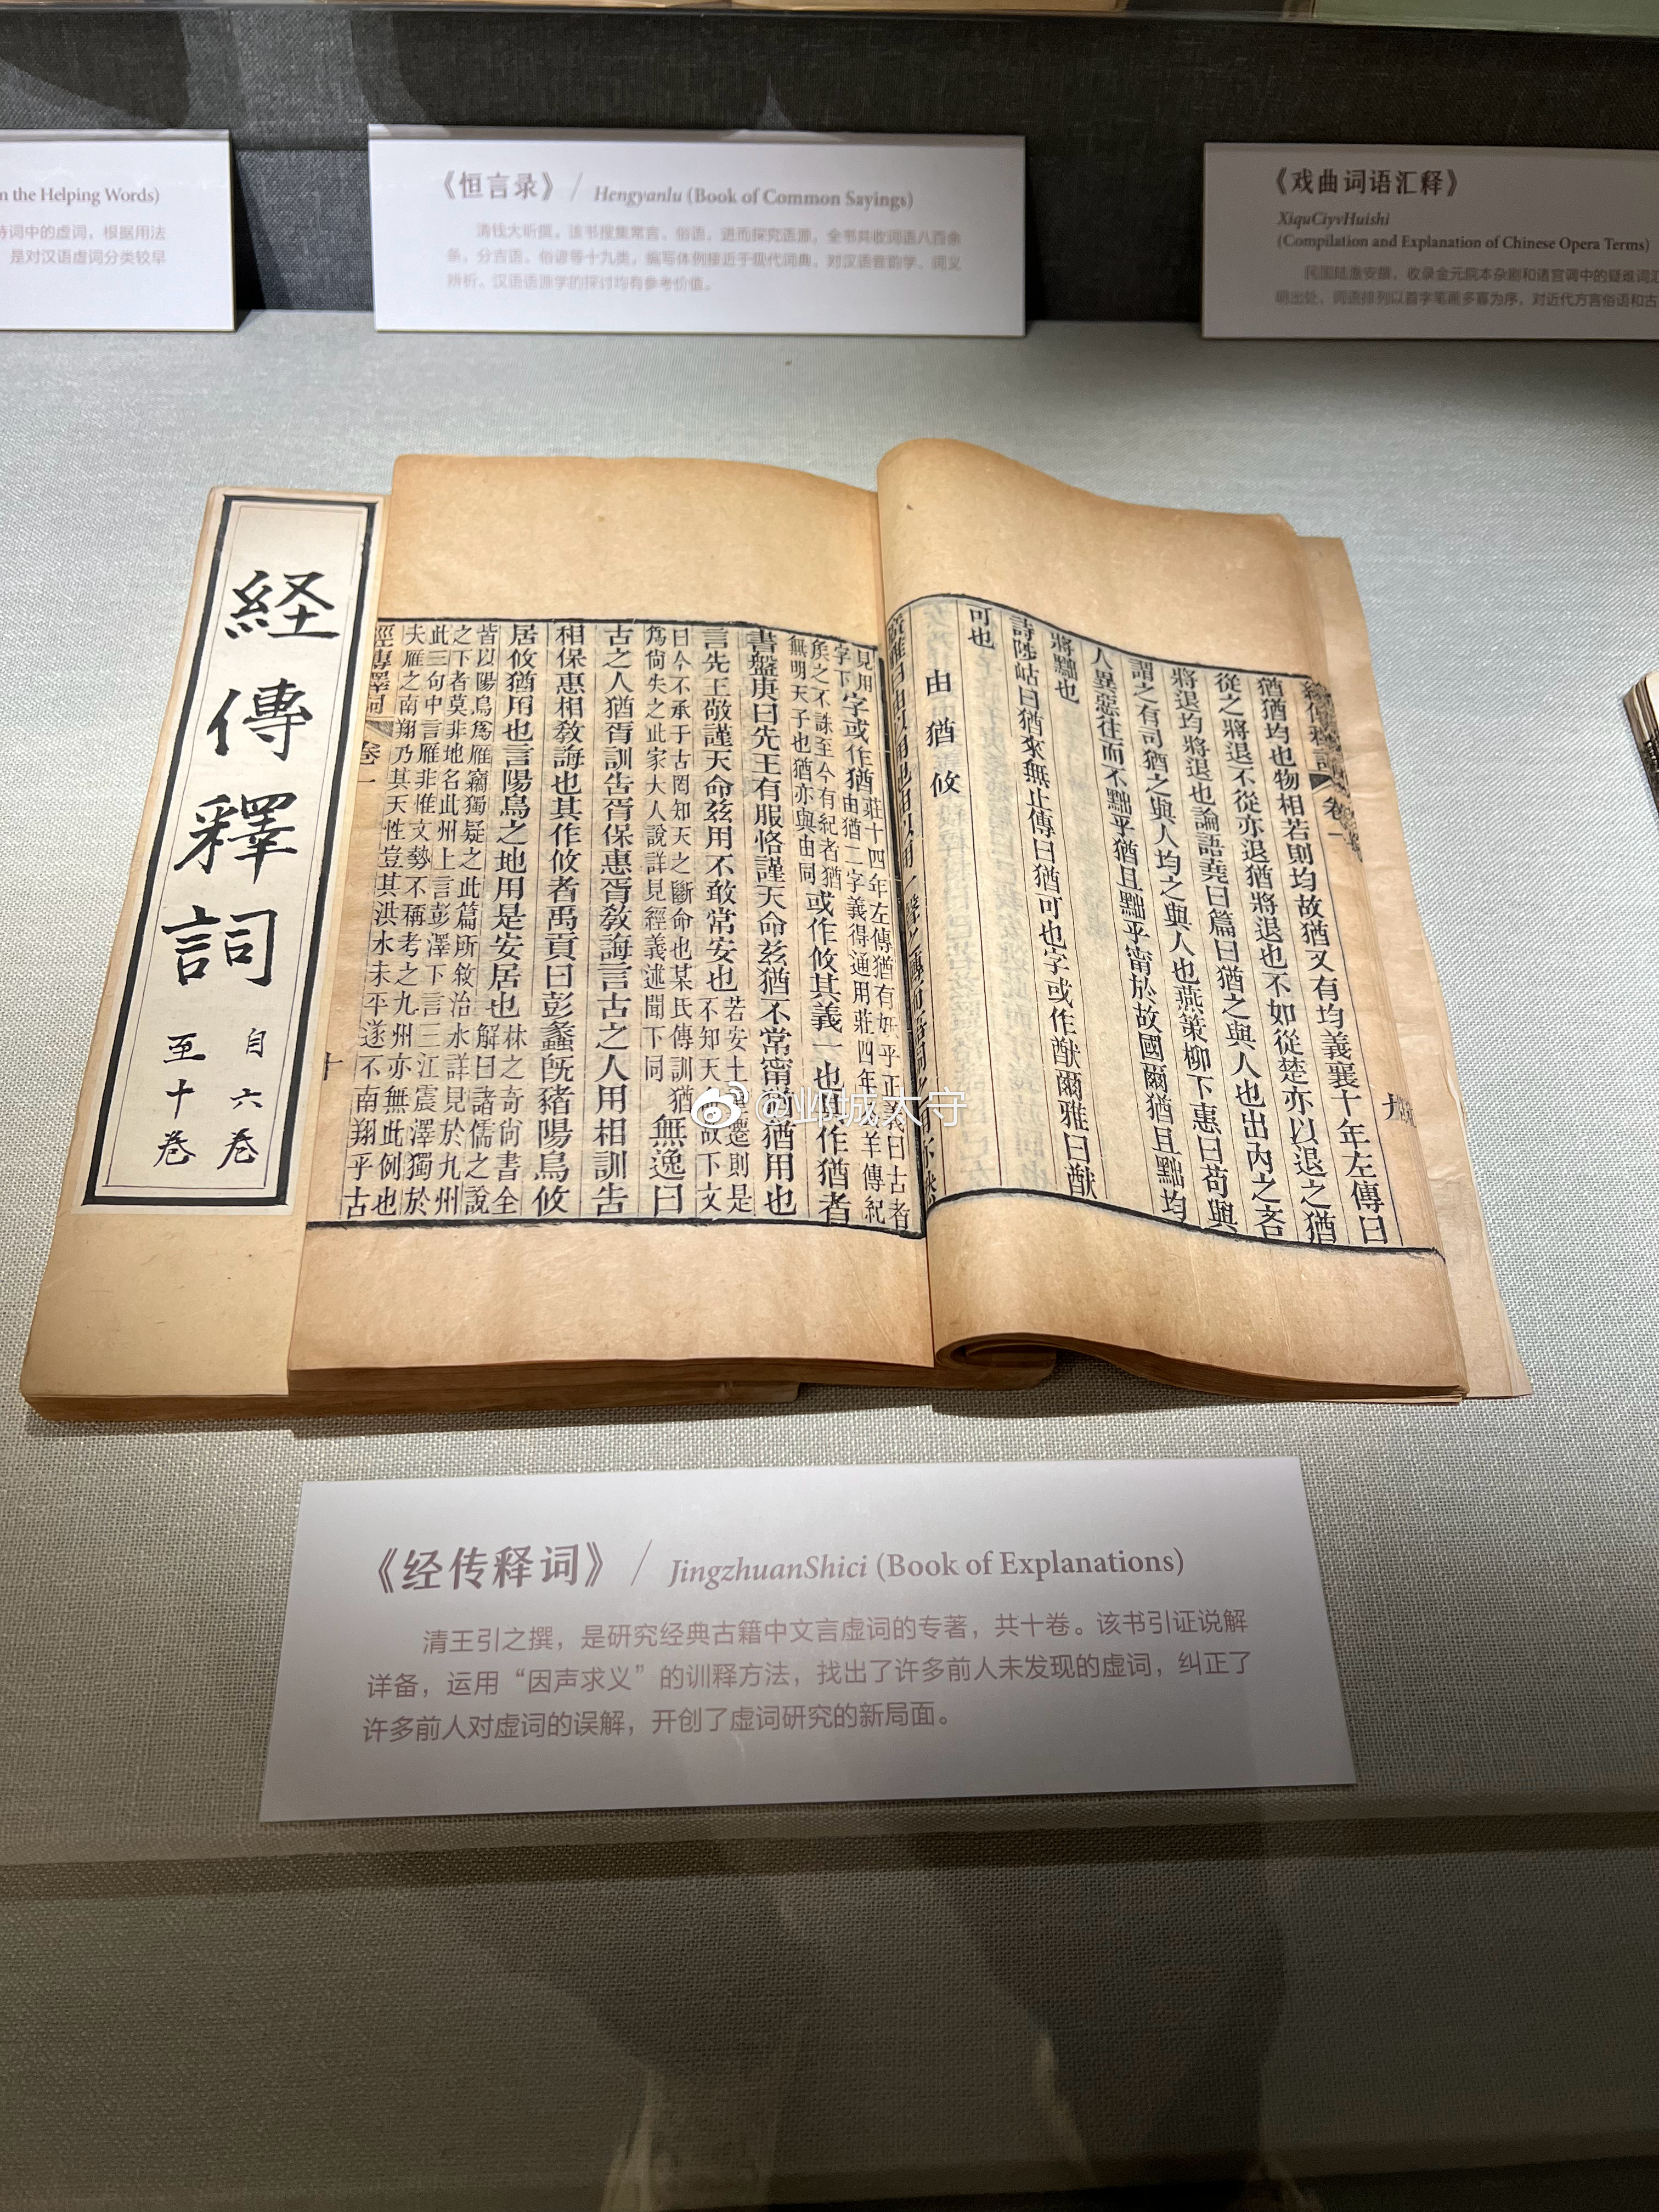 n the Helping Words)
诗词中的虚词，根据用法
是对汉语虚词分类较早
《恒言录》/ Hengyanlu (Book of Common Sayings)
清钱大昕撰。该书搜集常言、俗语，进而探究语源，全书共收词语八百余
条，分吉语、俗谚等十九类，编写体例接近于现代词典，对汉语音韵学、词义
辨析、汉语语源学的探讨均有参考价值。
《戏曲词语汇释》
XiquCiyvHuishi
(Compilation and Explanation of Chinese Opera Terms)
民国陆澹安撰，收录金元院本杂剧和诸宫调中的疑难词汇
明出处，词语排列以首字笔画多寡为序，对近代方言俗语和古
経傳釋詞
自六卷
至十卷
經傳釋詞 卷一 九
猶猶均也物相若則均故猶又有均義襄十年左傳曰
從之將退不從亦退猶將退也不如從楚亦以退之猶
將退均將退也論語堯曰篇曰猶之與人也出內之吝
謂之有司猶之與人均之與人也燕策柳下惠曰苟與
人異惡往而不黜乎猶且黜乎甯於故國爾猶且黜均
將黜也
詩陟岵曰猶來無止傳曰猶可也字或作猷爾雅曰猷
可也
由 猶 攸
見用
字下字或作猶莊十四年左傳猶有妖乎正義曰古者
由猶二字義得通用莊四年公羊傳紀
矦之不誅至今有紀者猶
無明天子也猶亦與由同或作攸其義一也其作猶者
書盤庚曰先王有服恪謹天命兹猶不常甯猶猶用也
言先王敬謹天命兹用不敢常安也若安土重遷則是
不知天命故下文
曰今不承于古罔知天之斷命也某氏傳訓猶
爲尙失之此家大人說詳見經義述聞下同無逸曰
古之人猶胥訓告胥保惠胥敎誨言古之人用相訓告
相保惠相敎誨也其作攸者禹貢曰彭蠡旣豬陽鳥攸
居攸猶用也言陽鳥之地用是安居也林之奇尙書全
解曰諸儒之說
皆以陽鳥爲雁竊獨疑之此篇所敘治水詳見於九州
之下者莫非地名此州上言彭澤下言三江震澤獨於
此三句中言雁非惟文勢不稱考之九州亦無此例也
夫雁之南翔乃其天性豈其洪水未平遂不南翔乎古
經傳釋詞 卷一 十
@邺城太守
《经传释词》/ JingzhuanShici (Book of Explanations)
清王引之撰，是研究经典古籍中文言虚词的专著，共十卷。该书引证说解
详备，运用“因声求义”的训释方法，找出了许多前人未发现的虚词，纠正了
许多前人对虚词的误解，开创了虚词研究的新局面。